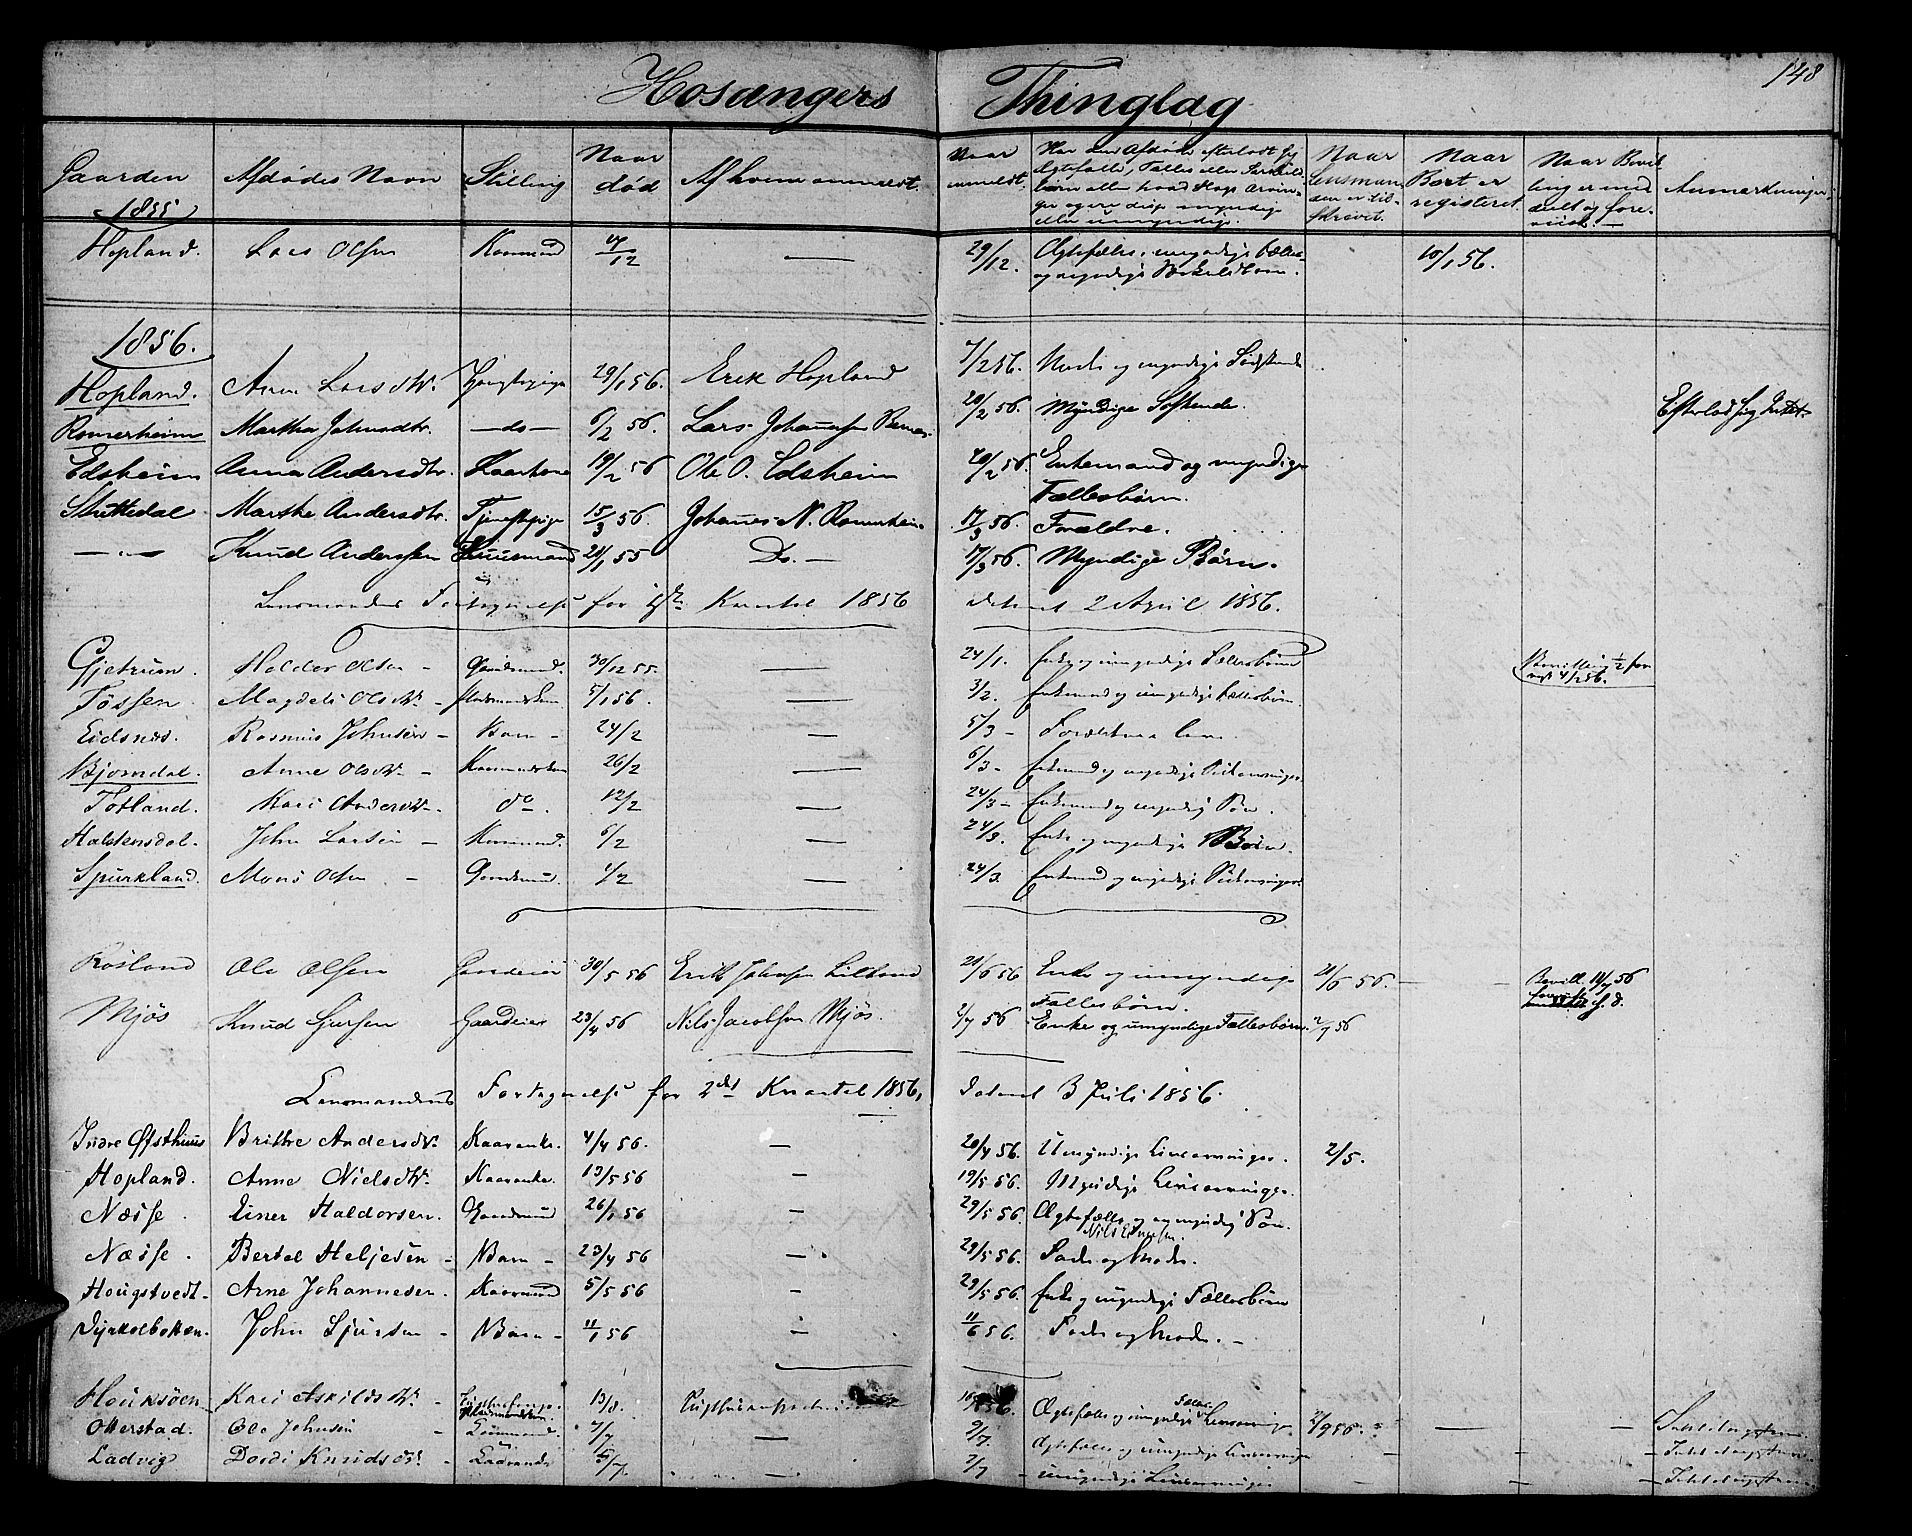 148
Hosangers Thinglag
Gaarden Afdødes Navn Stilling Naar død Af hvem anmeldt. Naar anmeldt. Har den Afdøde efterladt sig Ægtefælle, Fælles eller Særkuldbørn eller hvad Slags Arvinger og ere disse myndige eller umyndige. Naar Lensmanden er tilskrevet. Naar Boet er registeret. Naar Bevilling er meddelt og forevist. Anmærkninger
1855
Hopland. Lars Olsen Kaarmand 4/12 — 29/12. Ægtefælle, umyndige Fælles- og myndige Særkuldbørn. 10/1 56.
1856.
Hopland. Anne Larsdtr. 29/1 56. Erik Hopland 7/2 56. Moder og myndige Sødskende
Romerheim Martha Johnsdtr. —do— 6/2 56. Lars Johannesen 20/2 56. Myndige Søskende. Efterlod sig Intet
Edsheim Anna Andersdtr. Kaarkone 19/2 56 Ole O. Edsheim 20/2 56. Enkemand og myndige Fællesbørn.
Sluttedal Marthe Andersdtr. Tjenestepige 15/3 56. Johannes N. Romerheim 17/3 56. Forældre.
— " — Knud Anderssen Huusmand 20/1 55 Do. — 17/3 56. Myndige Børn.
Lensmandens Fortegnelse for 1ste Kvartal 1856 dateret 2 April 1856.
Gjetrum Haldor Olsen - Gaardmand. 30/12 55. — 24/1. Enke og umyndige Fællesbørn Bevilling forevist 4/2 56.
Tossen. Magdeli Olsdtr. - 5/1 56. — 3/2. Enkemand og umyndige Fællesbørn.
Eidsnes. Rasmus Johnsen - Barn - 24/2 — 5/3 -
Bjorndal. Anne Olsdtr. - Kaarmandskone 26/2 — 6/3 - Enkemand og myndige Livsarvinger.
Totland. Kari Andersdtr. do. 12/2 — 24/3 - Enkemand og umyndig Søn.
Halstensdal. John Larsen - Kaarmand. 6/2 — 24/3. Enke og myndige Børn.
Spurkland. Mons Olsen - Gaardmand. 1/2 — 24/3. Enkemand og myndige Livsarvinger.
Røsland Ole Olsen Gaardeier 30/5 56 Erik Johnsen Lilleland 20/6 56 Enke og umyndige Fællesbørn. 21/6 56. — - Bevill. 11/7 56
Mjøs Knud Sjursen Gaardeier 23/4 56 Nils Jacobsen Mjøs. 2/7 56 Enke og umyndige Fællesbørn. 2/7 56
Lensmandens Fortegnelse for 2det Kvartal 1856, dateret 3 Juli 1856.
Indre Østhuus Brithe Andersdtr. Kaarenke. 4/4 56. — 20/4 56. Umyndige Livsarvinger. 2/5.
Hopland. Anne Nielsdtr. Kaarenke. 13/5 56 — 19/5 56. Myndige Livsarvinger.
Næsse. Einer Haldorsen. Gaardmand 26/1 56 — 29/5 56. Ægtefælle og en myndig Søn. Nils Einersen.
Næsse. Bertel Heljesen - Barn - 23/4 56 — 29/5 56. Fader og Moder.
Hougstvedt - Arne Johannesen. Kaarmand 5/5 56 - 29/5 56. Enke og myndige Fællesbørn
Dyrkolbotten. John Sjursen - Barn - 11/1 56 — 11/6 56. Fader og Moder. -
Houksøen - Kari Askildsdtr. - 13/8. Ægtefælle og umyndige Fælles Livsarvinger
Otterstad. Ole Johnsen - 7/7 — 9/7. Ægtefælle og umyndige Livsarvinger
Ladvig Dordi Knudsdtr. — 7/7 - umyndige Livsarvinger